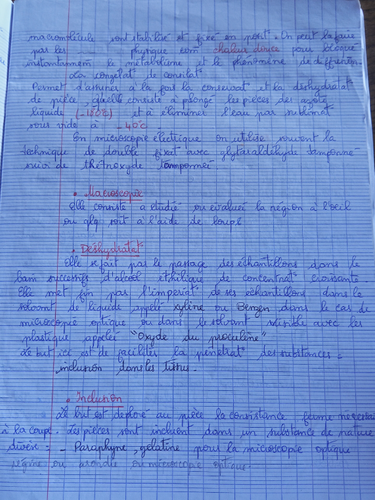 macromolécule sont stabilisé et fixé en post. On peut la faire
par les physique com chaleur douce pour bloquer
instantanném le métabolisme et le phénomène de
La congelat de
Permet d'assurer à la fois la conservat et la déshydratat
de pièce, quelle consiste à plongé les pièces des azote
liquide (-180°C) et à éliminer l'eau par sublimat
sous vide à -40°C
En microscopie électrique on utilise souvent la
technique de double fixat avec glytaraldéhyde tamponné
suivi de thétroxyde tamponnée
• Macroscopie
Elle consiste a étudié ou évaluer la région à l'oeil
ou qlq soit à l'aide de loupe
• Déshydratat
Elle se fait par le passage des échantillons dans le
bam successifs d'alcool éthilique de concentrat croissante
Elle met fin par l'imperiat de ses échantillons dans le
solvant de liquide appelé xyline ou Benzen dans le cas de
microscopie optique ou dans le solvant avec les
plastique appelés "Oxyde du procúline"
Le but ici est de faciliter la pénétrat des substances
inclusion dans les tissus.
• Inclusion
Le but est de la pièce la consistance ferme nécessai
à la coupe. Les pièces sont incluent dans un substance de nature
divers = - Paraphyne, gélatine pour la microscopie optique
résine ou microscopie optique.